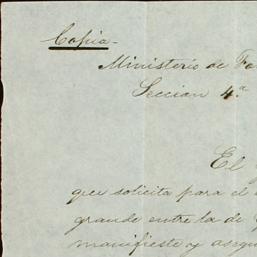 Copia-
Ministerio de Fo
Seccion 4.a
El
que solicita para el
grande entre la de
manifieste y asegu